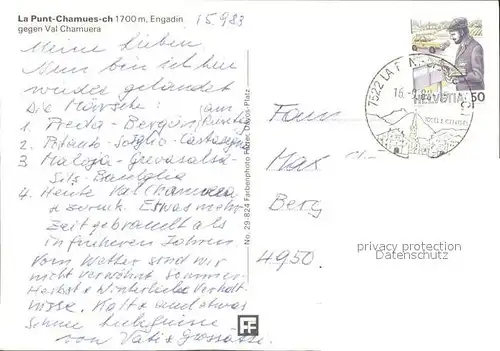 La Punt-Chamues-ch 1700 m, Engadin
gegen Val Chamuera
15.9.83
Meine Lieben.
Nun bin ich hier
wieder gelandet
Die Märsche: am
1. Preda - Bergün, Punt
2. Soglio - Castasegna
3. Maloja - Grevasalvas
Sils - Baselgia
4. Heute Val Chamuera
& zurück. Etwas mehr
Zeit gebraucht als
in früheren Jahren.
Vom Wetter sind wir
nicht verwöhnt Sommer-
Herbst & Winterliche Verhält-
nisse. Kalt & und etwas
Schnee Liebgrüsse
von Vati & Grossätti.
No. 29-824 Farbenphoto Furter, Davos-Platz
FF
HELVETIA 50
7522 LA P
16.-9.
Fam
Max
Berg
4950.
privacy protection
Datenschutz